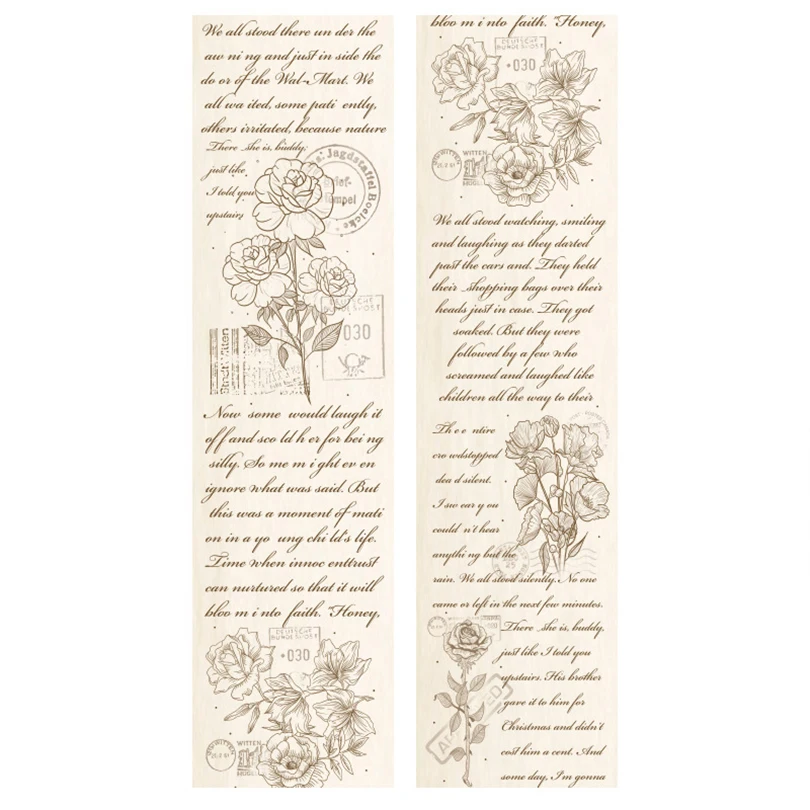 We all stood there un der the
aw ni ng and just in side the
do or of the Wal-Mart. We
all wa ited, some pati ently,
others irritated, because nature
There she is, buddy;
just like
I told you
upstairs
Jagdstaffel Boelcke
Brief-
DEUTSCHE
BUNDESPOST
030
Now some would laugh it
off and sco ld h er for bei ng
silly. So me m i ght ev en
ignore what was said. But
this was a moment of mati
on in a yo ung chi ld's life.
Time when innoc enttrust
can nurtured so that it will
bloo m i nto faith. "Honey,
DEUTSCHE
BUNDESPOST
030
WITTEN
11
bloo m i nto faith. "Honey,
DEUTSCHE
BUNDESPOST
030
WITTEN
11
We all stood watching, smiling
and laughing as they darted
past the cars and. They held
their shopping bags over their
heads just in case. They got
soaked. But they were
followed by a few who
screamed and laughed like
children all the way to their
Th e e ntire
cro wdstopped
dea d silent.
I sw ear y ou
could n't hear
anythi ng but the
rain. We all stood silently. No one
came or left in the next few minutes.
There she is, buddy.
just like I told you
upstairs. His brother
gave it to him for
Christmas and didn't
cost him a cent. And
some day, I'm gonna